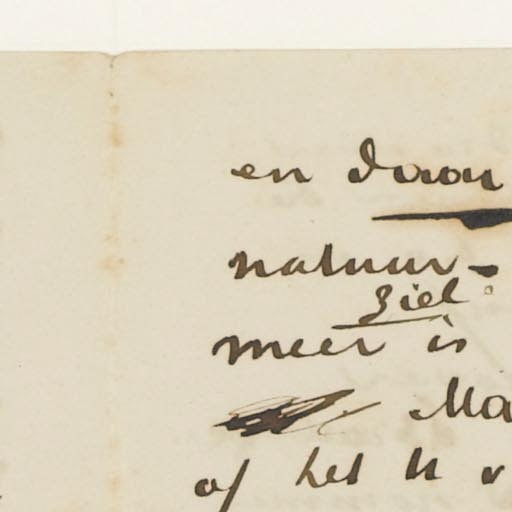 en door
natuur-
ziel
meer is
Ma
of het U v